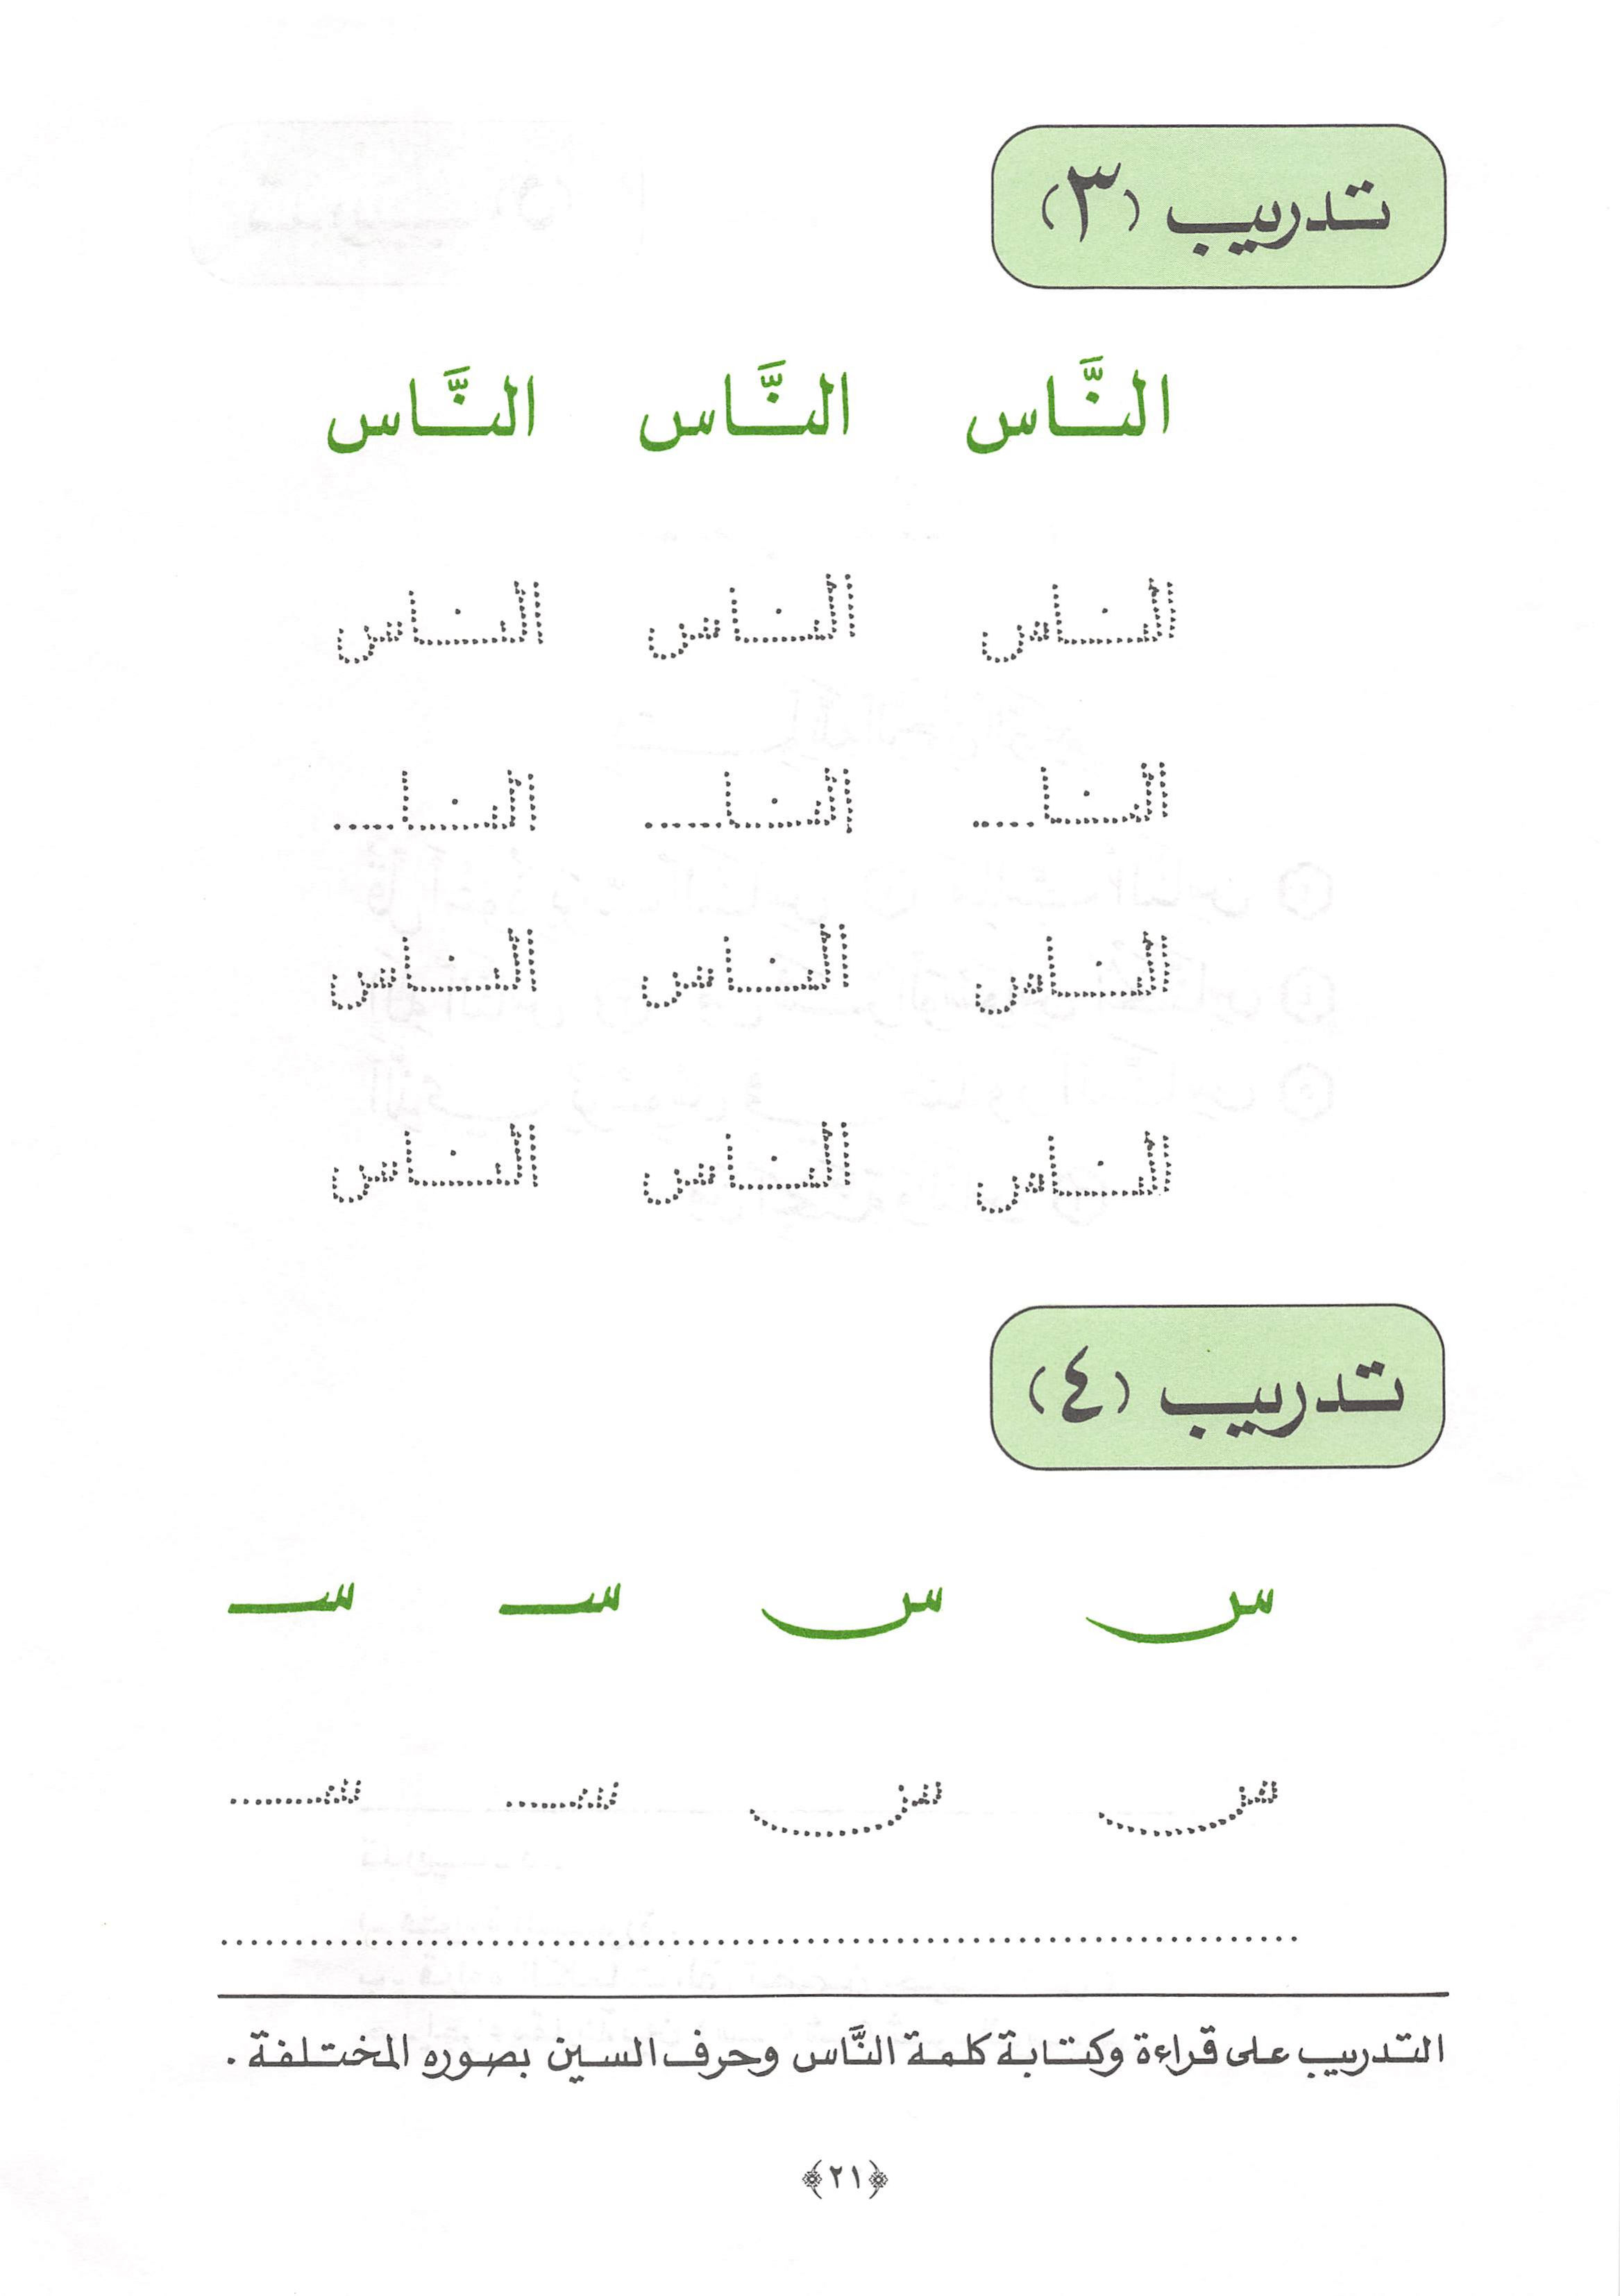 تدريب (٣)
النَّاس النَّاس النَّاس
الناس الناس الناس
النا.... النا.... النا....
الناس الناس الناس
الناس الناس الناس
تدريب (٤)
س س سـ سـ
س س سـ سـ
التدريب على قراءة وكتابة كلمة النَّاس وحرف السين بصوره المختلفة .
﴿٢١﴾